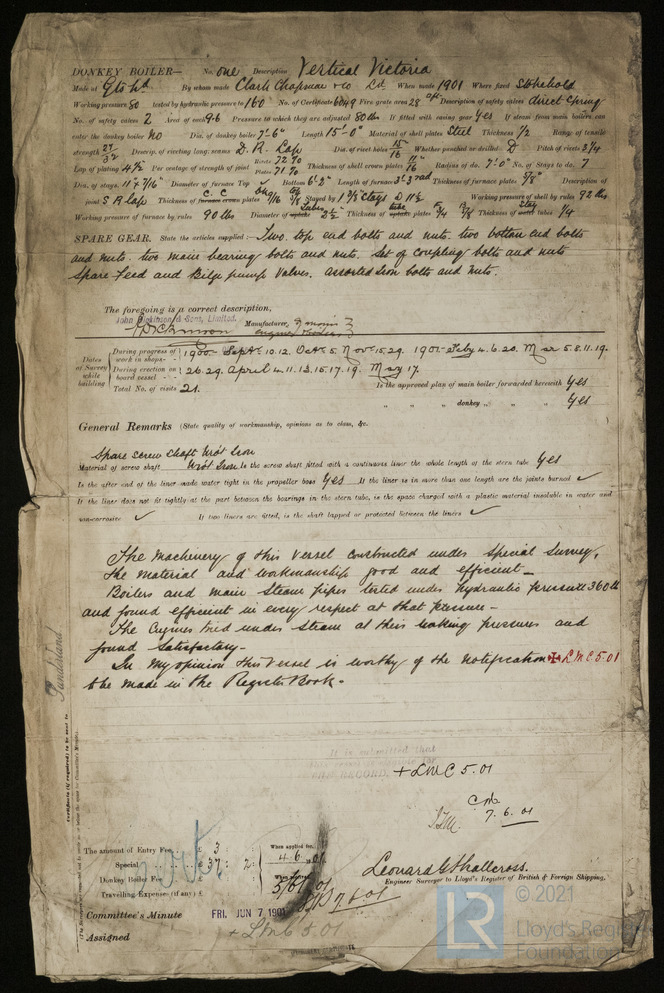 DONKEY BOILER— No. one Description Vertical Victoria
Made at By whom made Clark Chapman & Co Ld When made 1901 Where fixed Stokehold
Working pressure 80 tested by hydraulic pressure to 160 No. of Certificate 6049 Fire grate area 28 Description of safety valves direct spring
No. of safety valves 2 Area of each 9.6 Pressure to which they are adjusted 80 lbs If fitted with easing gear yes If steam from main boilers can
enter the donkey boiler no Dia. of donkey boiler 7'-6" Length 15'-0" Material of shell plates Steel Thickness 1/2 Range of tensile
strength 27/32 Descrip. of riveting long. seams D. R. Lap Dia. of rivet holes 15/16 Whether punched or drilled D Pitch of rivets 3 1/4
Lap of plating 4 1/2 Per centage of strength of joint Rivets 72 % Plates 71 % Thickness of shell crown plates 11/16 Radius of do. 7'-0" No. of Stays to do. 7
Dia. of stays. 1 1/16" Diameter of furnace Top Bottom 6'-2" Length of furnace 3'.3 Thickness of furnace plates 5/8" Description of
joint S R Lap Thickness of furnace crown plates Stayed by 1 3/8" Stays Working pressure of shell by rules 92 lbs
Working pressure of furnace by rules 90 lbs Diameter of uptake 2 1/2" Thickness of uptake plates Thickness of water tubes 1/4
SPARE GEAR. State the articles supplied:— Two. top end bolts and nuts. two bottom end bolts
and nuts. two main bearing bolts and nuts. Set of coupling bolts and nuts
Spare Feed and Bilge pump valves. assorted iron bolts and nuts.
The foregoing is a correct description,
John Dickinson & Sons, Limited.
Manufacturer,
Dates of Survey while building
During progress of work in shops - 1900. Sept. 10.12. Oct. 5. Nov. 15.29. 1901. Feby 4.6.20. Mar 5.8.11.19.
During erection on board vessel - 26.29. April 4.11.13.15.17.19. May 17.
Total No. of visits 21.
Is the approved plan of main boiler forwarded herewith yes
" " " donkey " " " yes
General Remarks (State quality of workmanship, opinions as to class, &c.
Spare screw shaft Wrot Iron
Material of screw shaft Wrot Iron Is the screw shaft fitted with a continuous liner the whole length of the stern tube yes
Is the after end of the liner made water tight in the propeller boss yes If the liner is in more than one length are the joints burned ✓
If the liner does not fit tightly at the part between the bearings in the stern tube, is the space charged with a plastic material insoluble in water and
non-corrosive ✓ If two liners are fitted, is the shaft lapped or protected between the liners ✓
The machinery of this vessel constructed under special survey,
the material and workmanship good and efficient—
Boilers and main steam pipes tested under hydraulic pressure 360 lb
and found efficient in every respect at that pressure—
The engines tried under steam at their working pressures and
found satisfactory—
In my opinion this vessel is worthy of the notification ✠ LMC 5.01
to be made in the Register Book.
Sunderland
Certificate (if required) to be sent to
It is submitted that
RECORD, + LMC 5.01
7.6.01
The amount of Entry Fee £ 3
Special £ 37 : 2
Donkey Boiler Fee £
Travelling Expenses (if any) £
When applied for,
4.6.01
Leonard G Shallcross.
Engineer Surveyor to Lloyd's Register of British & Foreign Shipping.
Committee's Minute FRI. JUN 7 1901
Assigned + LMC 5.01
LR
© 2021
Lloyd's Register
Foundation